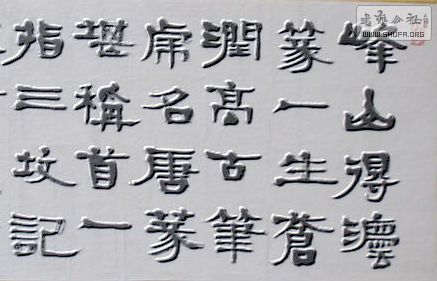 峰山得澧
篆一生蒼
潤高古筆
席名唐篆
堪稱首一
指三坟記
书艺公社
WWW.SHUFA.ORG